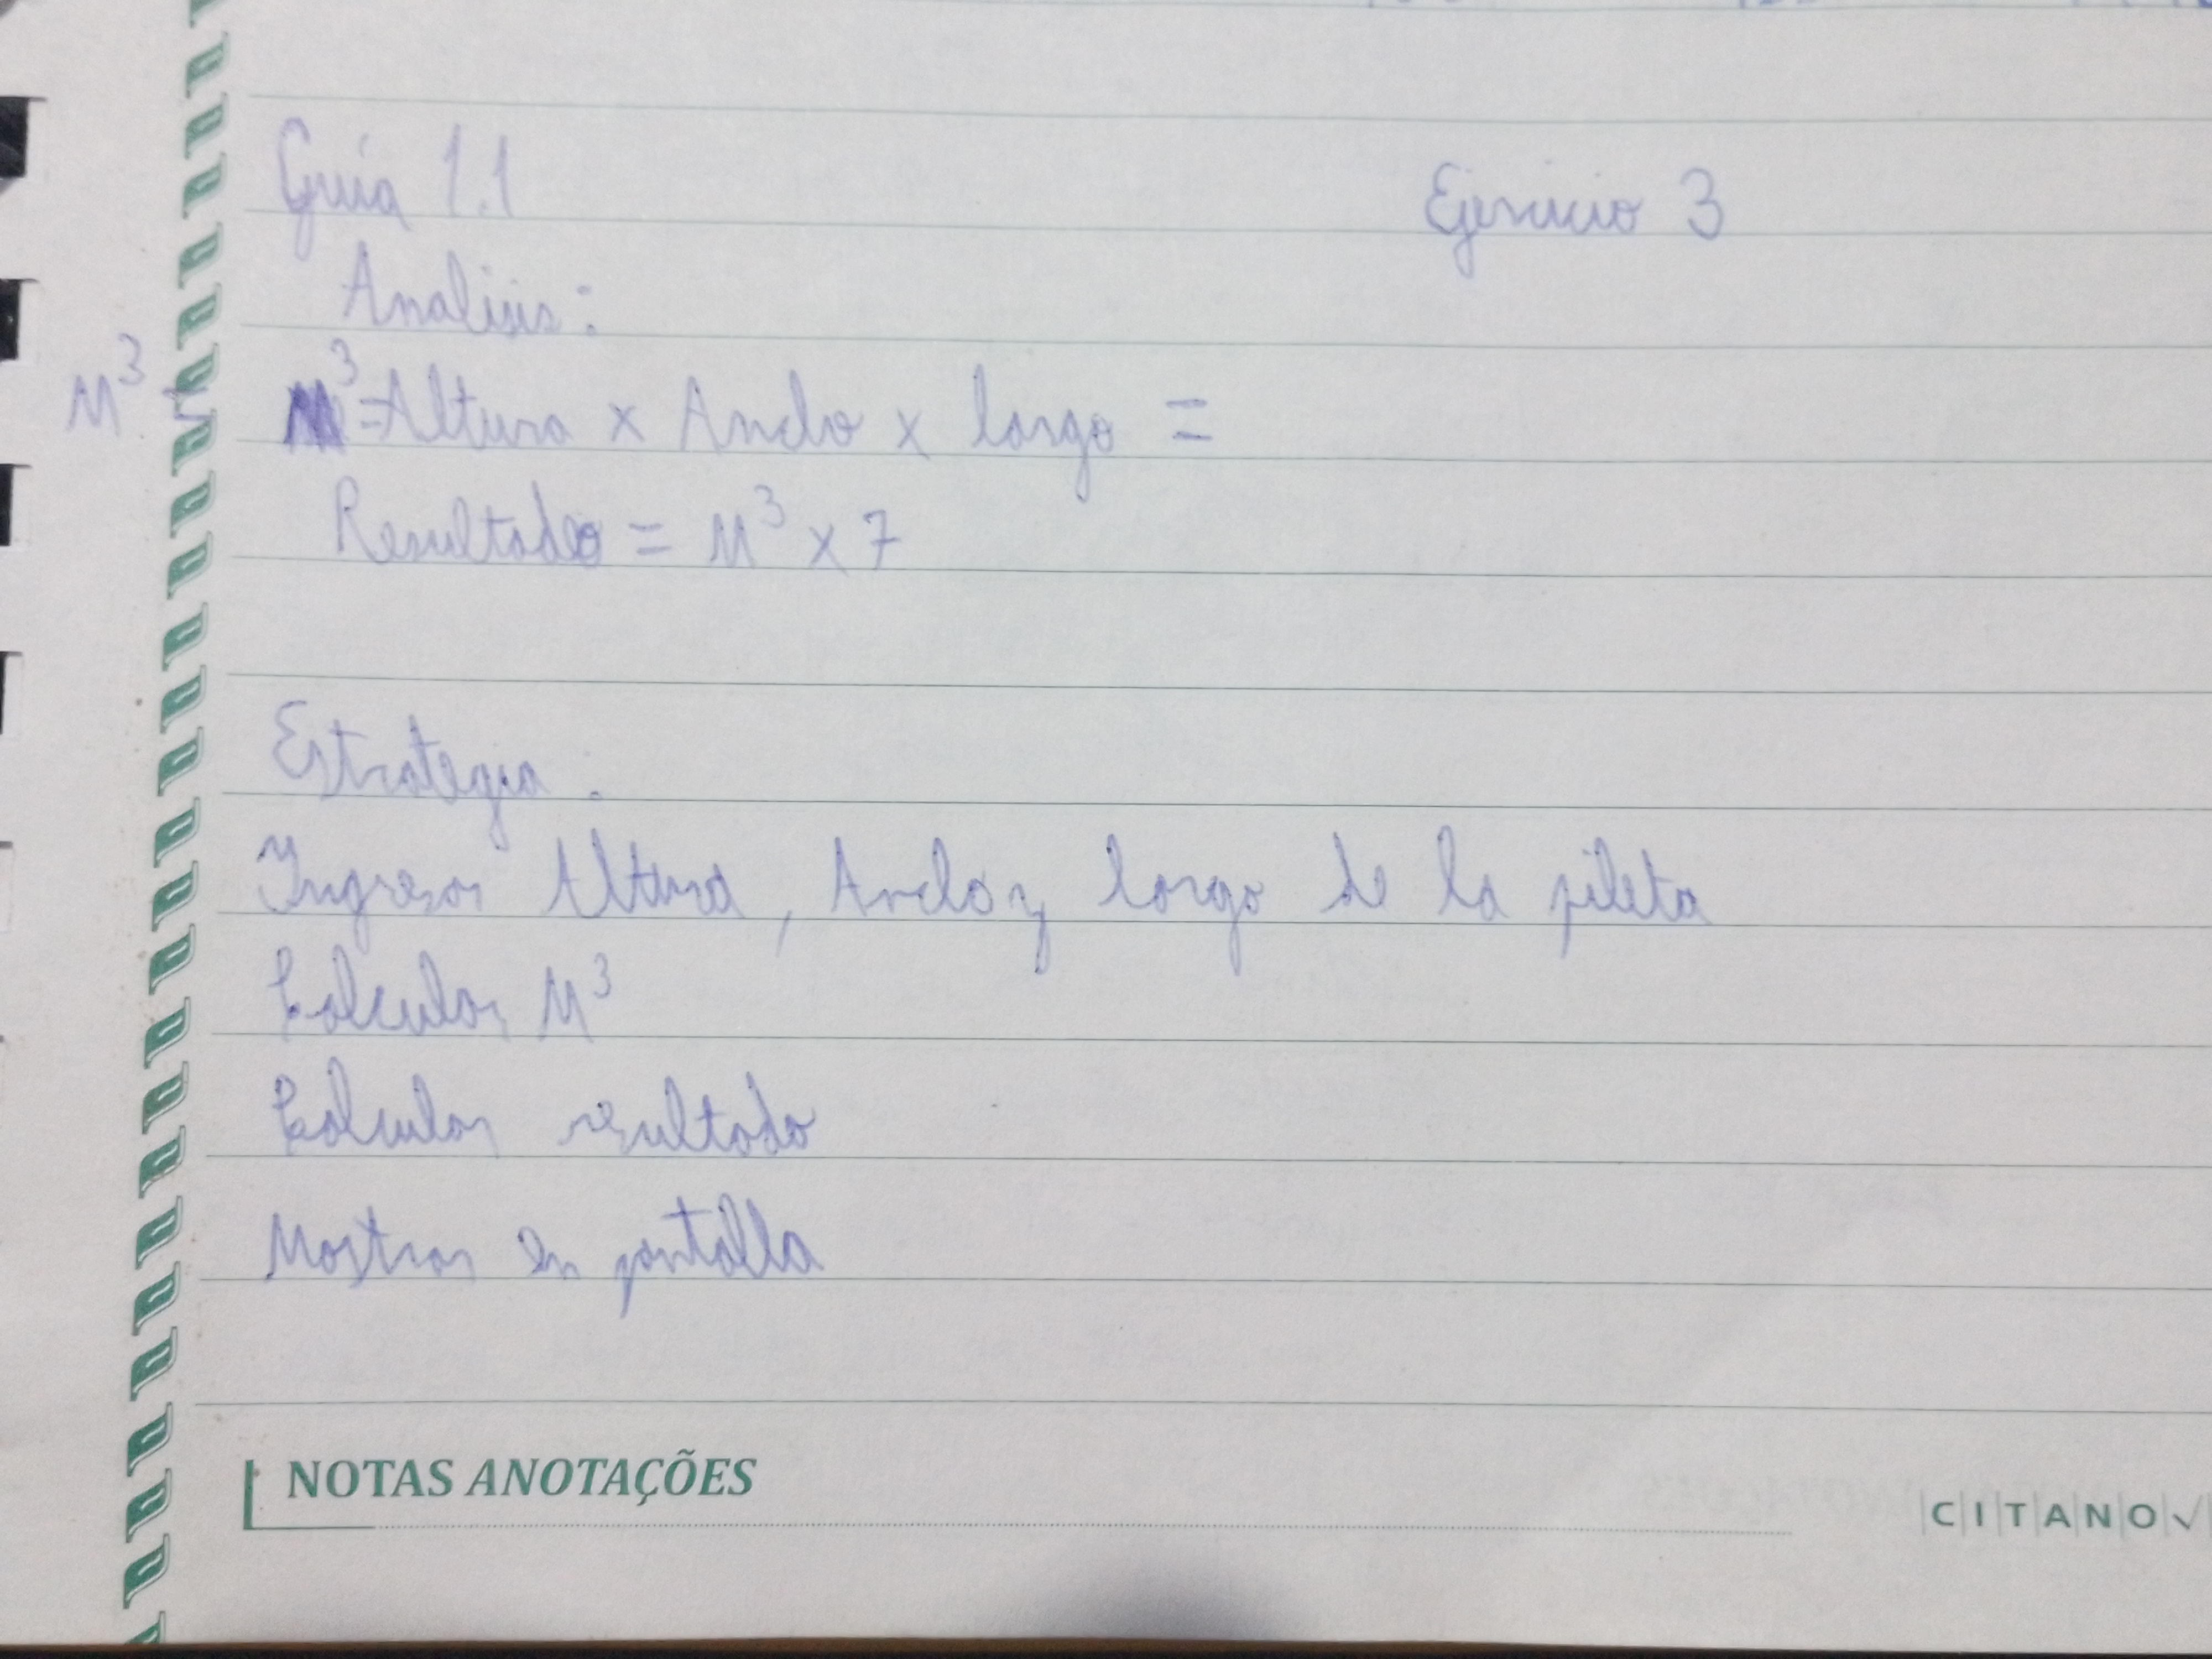 Guía 1.1 Ejercicio 3
Analisis:
M³ M³=Altura x Ancho x largo =
Resultado = M³ x 7
Estrategia:
Ingresar Altura, Ancho y largo de la pileta
Calcular M³
Calcular resultado
Mostrar en pantalla
NOTAS ANOTAÇÕES
CITANO